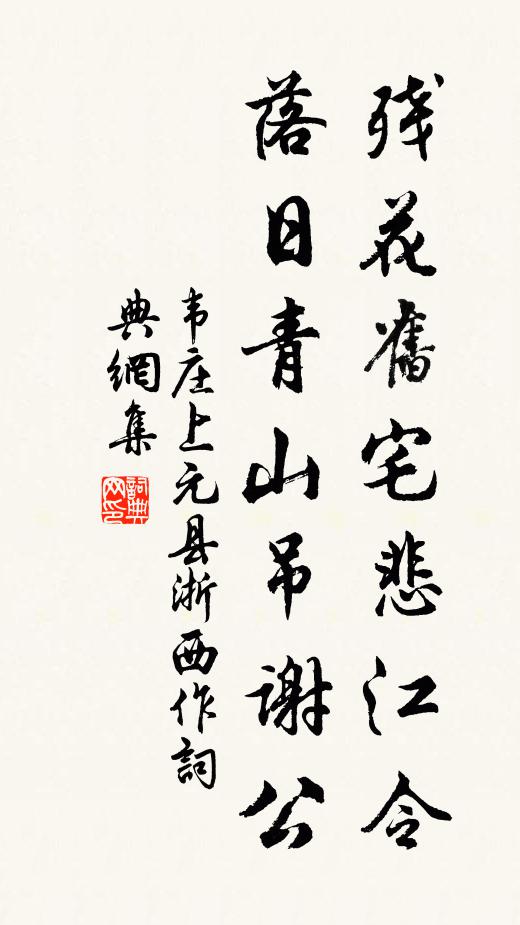 残花舊宅悲江令
落日青山吊謝公
韦庄上元县浙西作詞
典網集
詞典网印